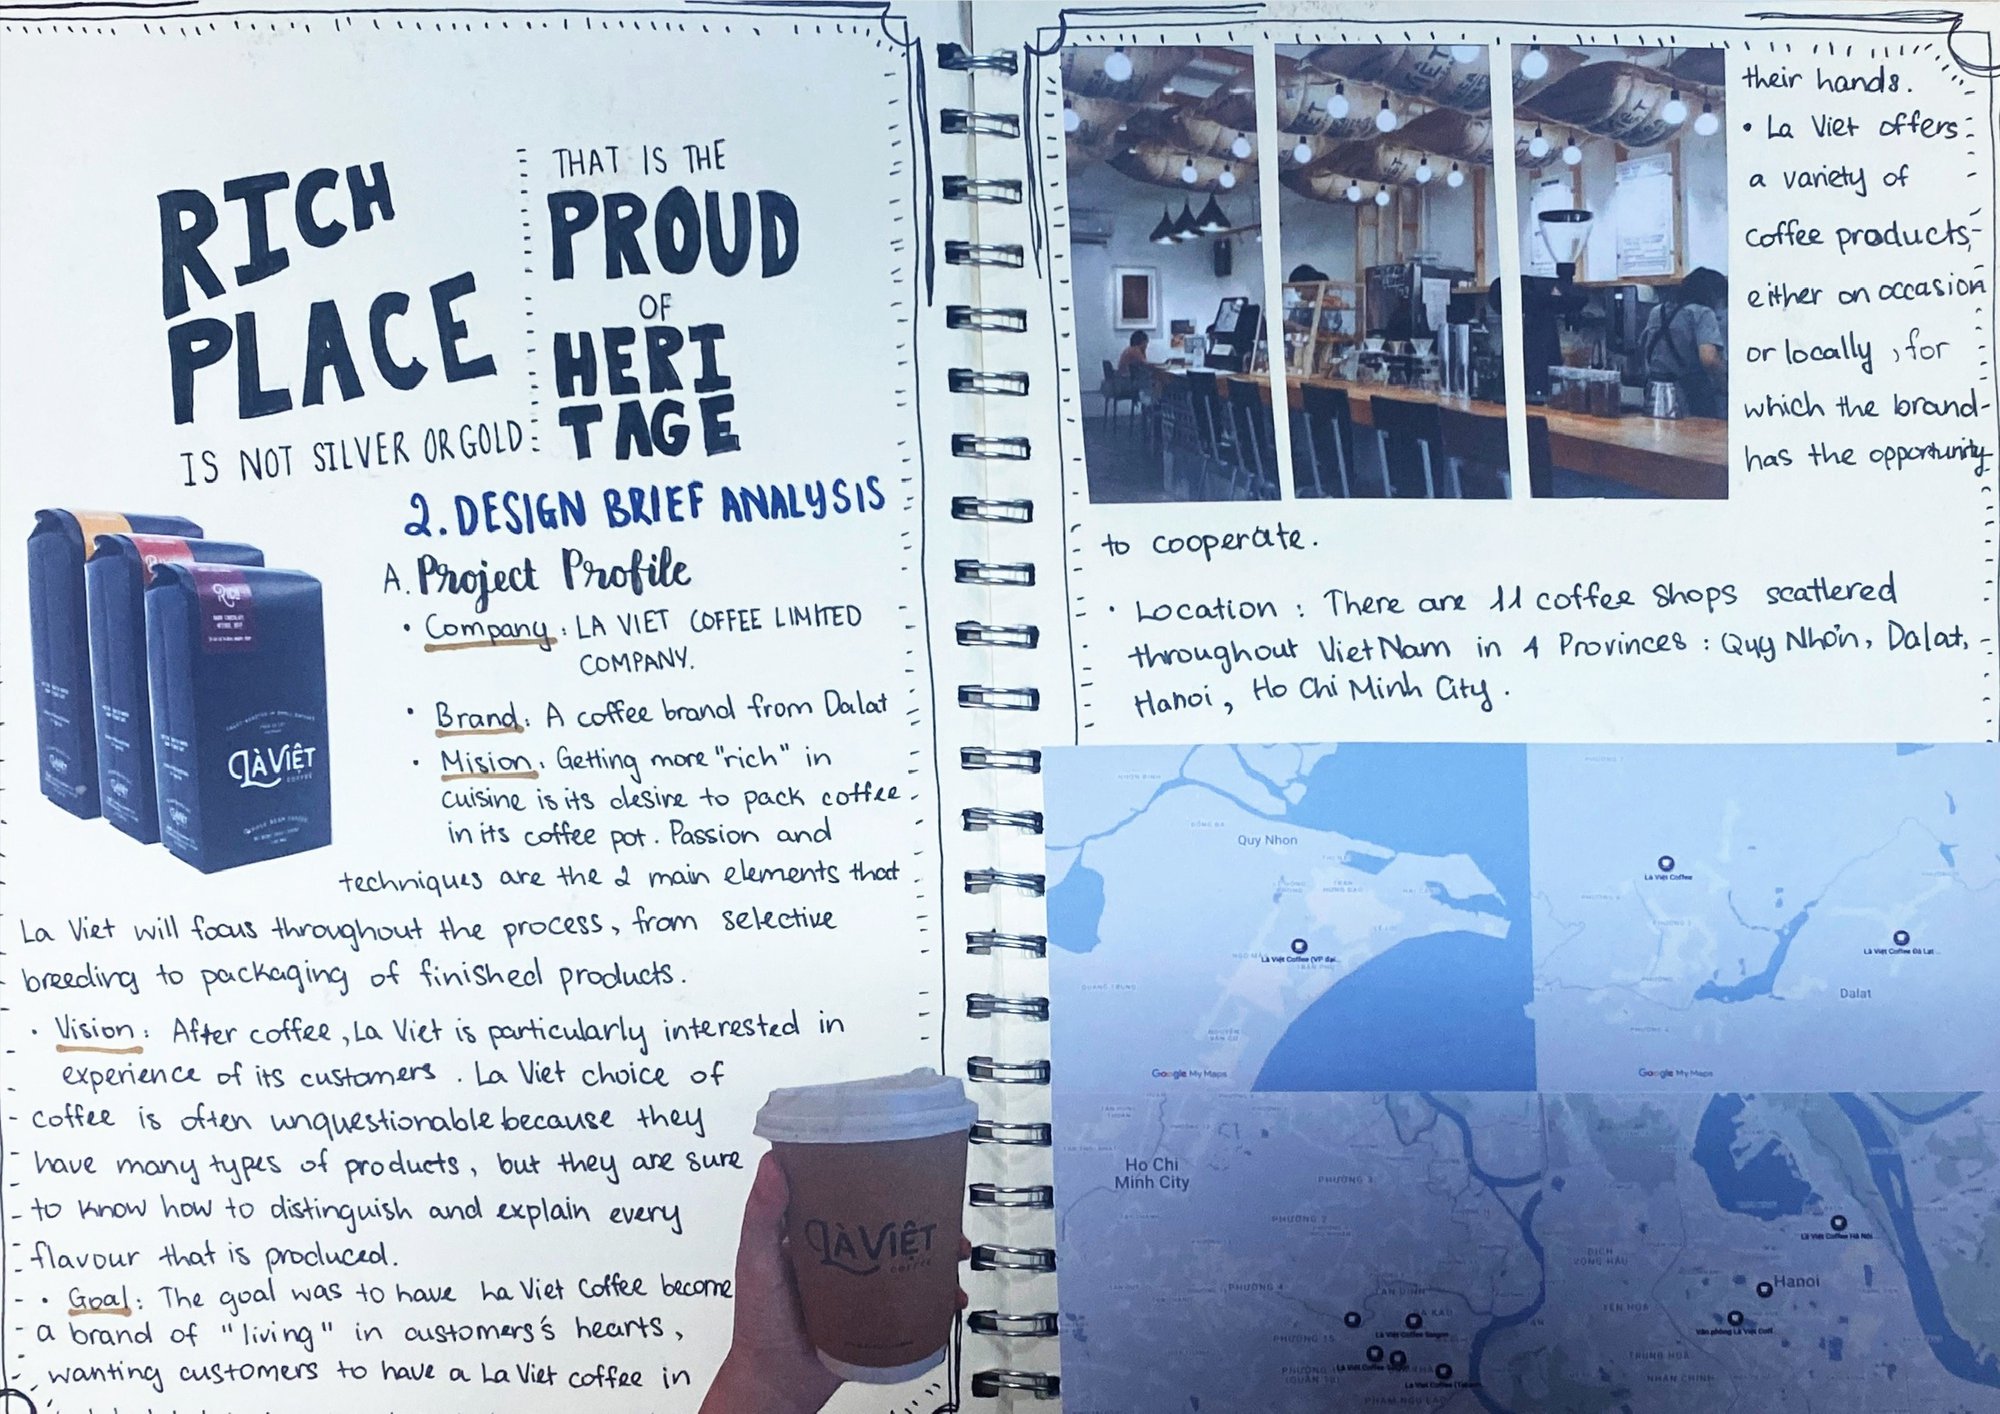 RICH
PLACE
IS NOT SILVER OR GOLD
THAT IS THE
PROUD
OF
HERI
TAGE
2. DESIGN BRIEF ANALYSIS
A. Project Profile
• Company: LA VIET COFFEE LIMITED
COMPANY.
• Brand: A coffee brand from Dalat
• Mision: Getting more "rich" in
cuisine is its desire to pack coffee
in its coffee pot. Passion and
techniques are the 2 main elements that
La Viet will focus throughout the process, from selective
breeding to packaging of finished products.
• Vision: After coffee, La Viet is particularly interested in
experience of its customers. La Viet choice of
coffee is often unquestionable because they
have many types of products, but they are sure
to know how to distinguish and explain every
flavour that is produced.
• Goal: The goal was to have La Viet Coffee become
a brand of "living" in customers's hearts,
wanting customers to have a La Viet coffee in
RICH
LÀ VIỆT
COFFEE
LÀ VIỆT
COFFEE
their hands.
• La Viet offers
a variety of
coffee products,
either on occasion
or locally, for
which the brand
has the opportunity
to cooperate.
• Location: There are 11 coffee shops scatlered
throughout VietNam in 4 Provinces: Quy Nhơn, Dalat,
Hanoi, Ho Chi Minh City.
NHƠN BÌNH
ĐỐNG ĐA
Quy Nhon
QUANG TRUNG
Là Việt Coffee (VP đại...
Google My Maps
Là Việt Coffee
Là Việt Coffee Đà Lạt...
Dalat
Google My Maps
Ho Chi
Minh City
PHƯỜNG 3
PHƯỜNG 7
PHƯỜNG 4
PHƯỜNG 15
TÂN ĐỊNH
ĐA KAO
Là Việt Coffee Saigon
PHẠM NGŨ LÃO
Là Việt Coffee Hà Nội
Hanoi
Văn phòng Là Việt Coff...
YÊN HOÀ
TRUNG HOÀ
NHÂN CHÍNH